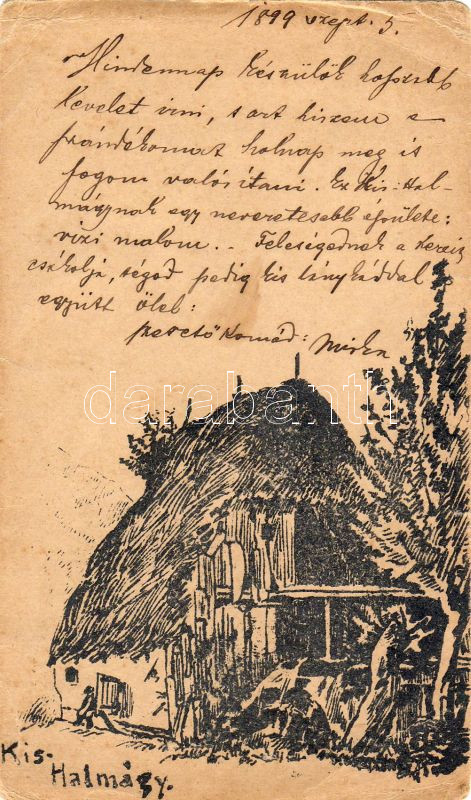 1899 szept. 5.
Mindennap készülök hosszabb
levelet írni, s azt hiszem e
szándékomat holnap meg is
fogom valósítani. Ez Kis-Hal-
mágynak egy nevezetesebb épülete:
vizi malom.. Feleségednek a kezeit
csókolja, téged pedig kis lánykáddal
együtt ölel:
szerető Komád:
darabanth.com
Kis-
Halmágy.